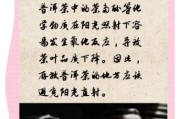 普洱茶中的茶多酚等化
学物质在阳光照射下容
易发生氧化反应，导致
茶叶品质下降。因此，
存放普洱茶的地方应该
避免阳光直射。